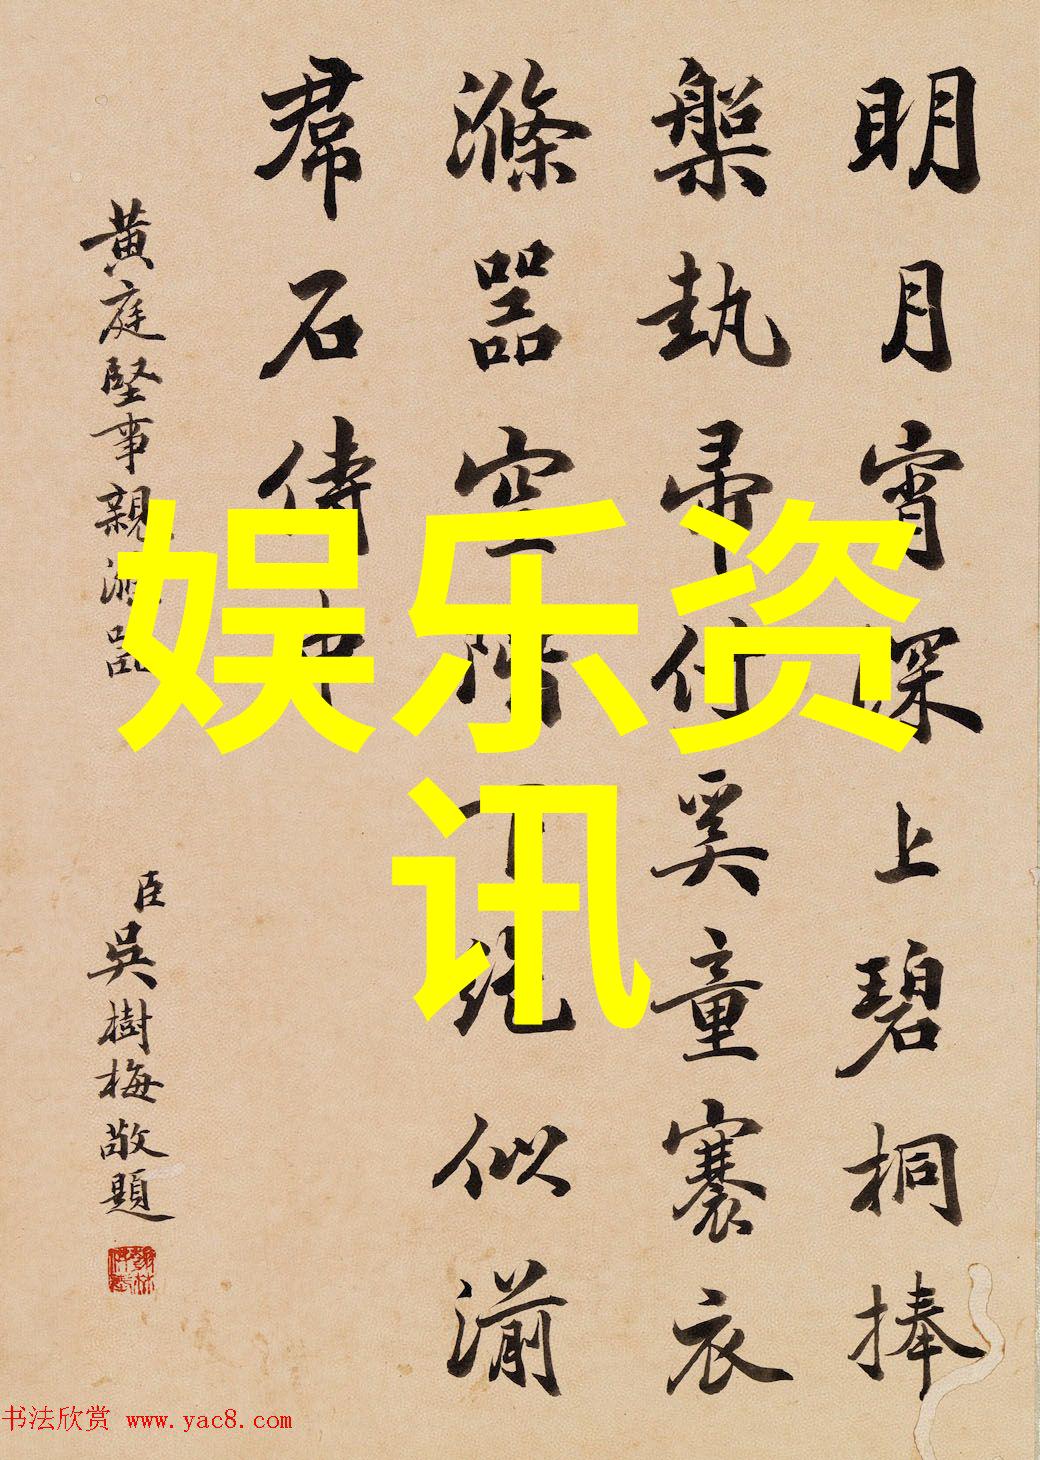 明月宵深上碧桐捧
槃執帚付奚童褰衣
滌器空階下絕似湔
帬石侍中
黃庭堅事親滌器
臣吳樹梅敬題
娱乐资
讯
书法欣赏 www.yac8.com